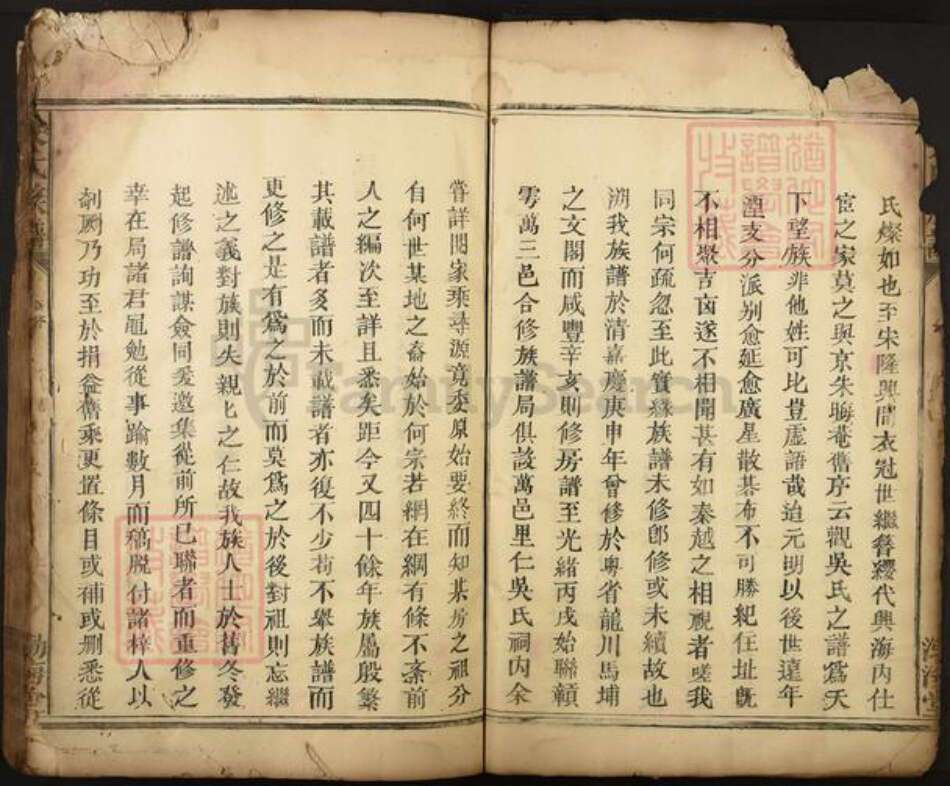 氏燦如也至宋隆興間衣冠世繼簪纓代興海內仕
宦之家莫之與京朱晦菴舊序云觀吳氏之譜爲天
下望族非他姓可比豈虛語哉迨元明以後世遠年
湮支分派别愈延愈廣星散碁布不可勝紀住址旣
不相聚吉凶遂不相聞甚有如秦越之相視者嗟我
同宗何疏忽至此實緣族譜未修卽修或未續故也
溯我族譜於清嘉慶庚申年曾修於粵省龍川馬埔
之文閣而咸豐辛亥則修房譜至光緒丙戌始聯贛
雩萬三邑合修族譜局俱設萬邑里仁吳氏祠內余
嘗詳閱家乘尋源竟委原始要終而知某房之祖分
自何世某地之畚始於何宗若網在綱有條不紊前
人之編次至詳且悉矣距今又四十餘年族屬殷繁
其載譜者多而未載譜者亦復不少苟不舉族譜而
更修之是有爲之於前而莫爲之於後對祖則忘繼
述之義對族則失親匕之仁故我族人士於舊冬發
起修譜詢謀僉同爰邀集從前所已聯者而重修之
幸在局諸君黽勉從事踰數月而稿脫付諸梓人以
剞劂乃功至於捐益舊乘更置條目或補或删悉從
勃海堂
FamilySearch